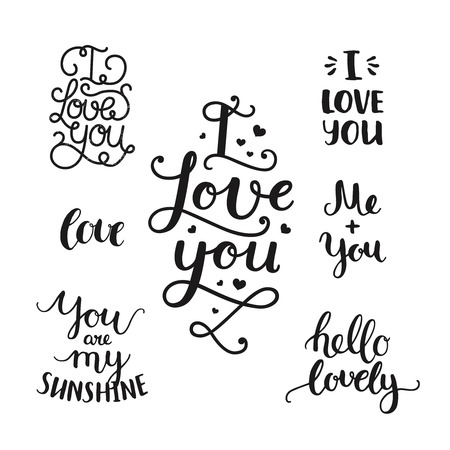 I
Love
you
I
Love
you
I
LOVE
YOU
love
Me
+
You
You
are
my
SUNSHINE
hello
lovely